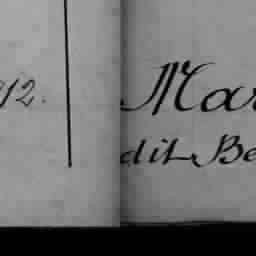 12.
Mar
dit Be